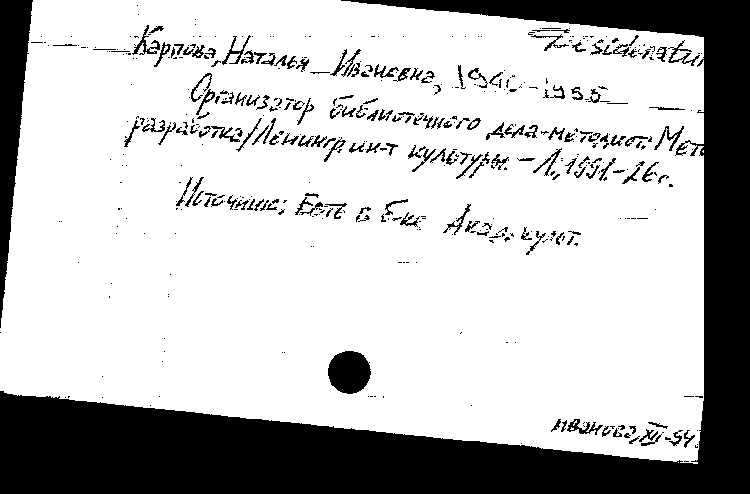 Desideratu
Карпова, Наталья Ивановна,
Организатор библиотечного дела-методист: Мето
разработка/Ленингр ин-т культуры. – Л., 1991. – 26 с.
Источник: Есть в б-ке Акад. культ.
Иванова, XII-94.